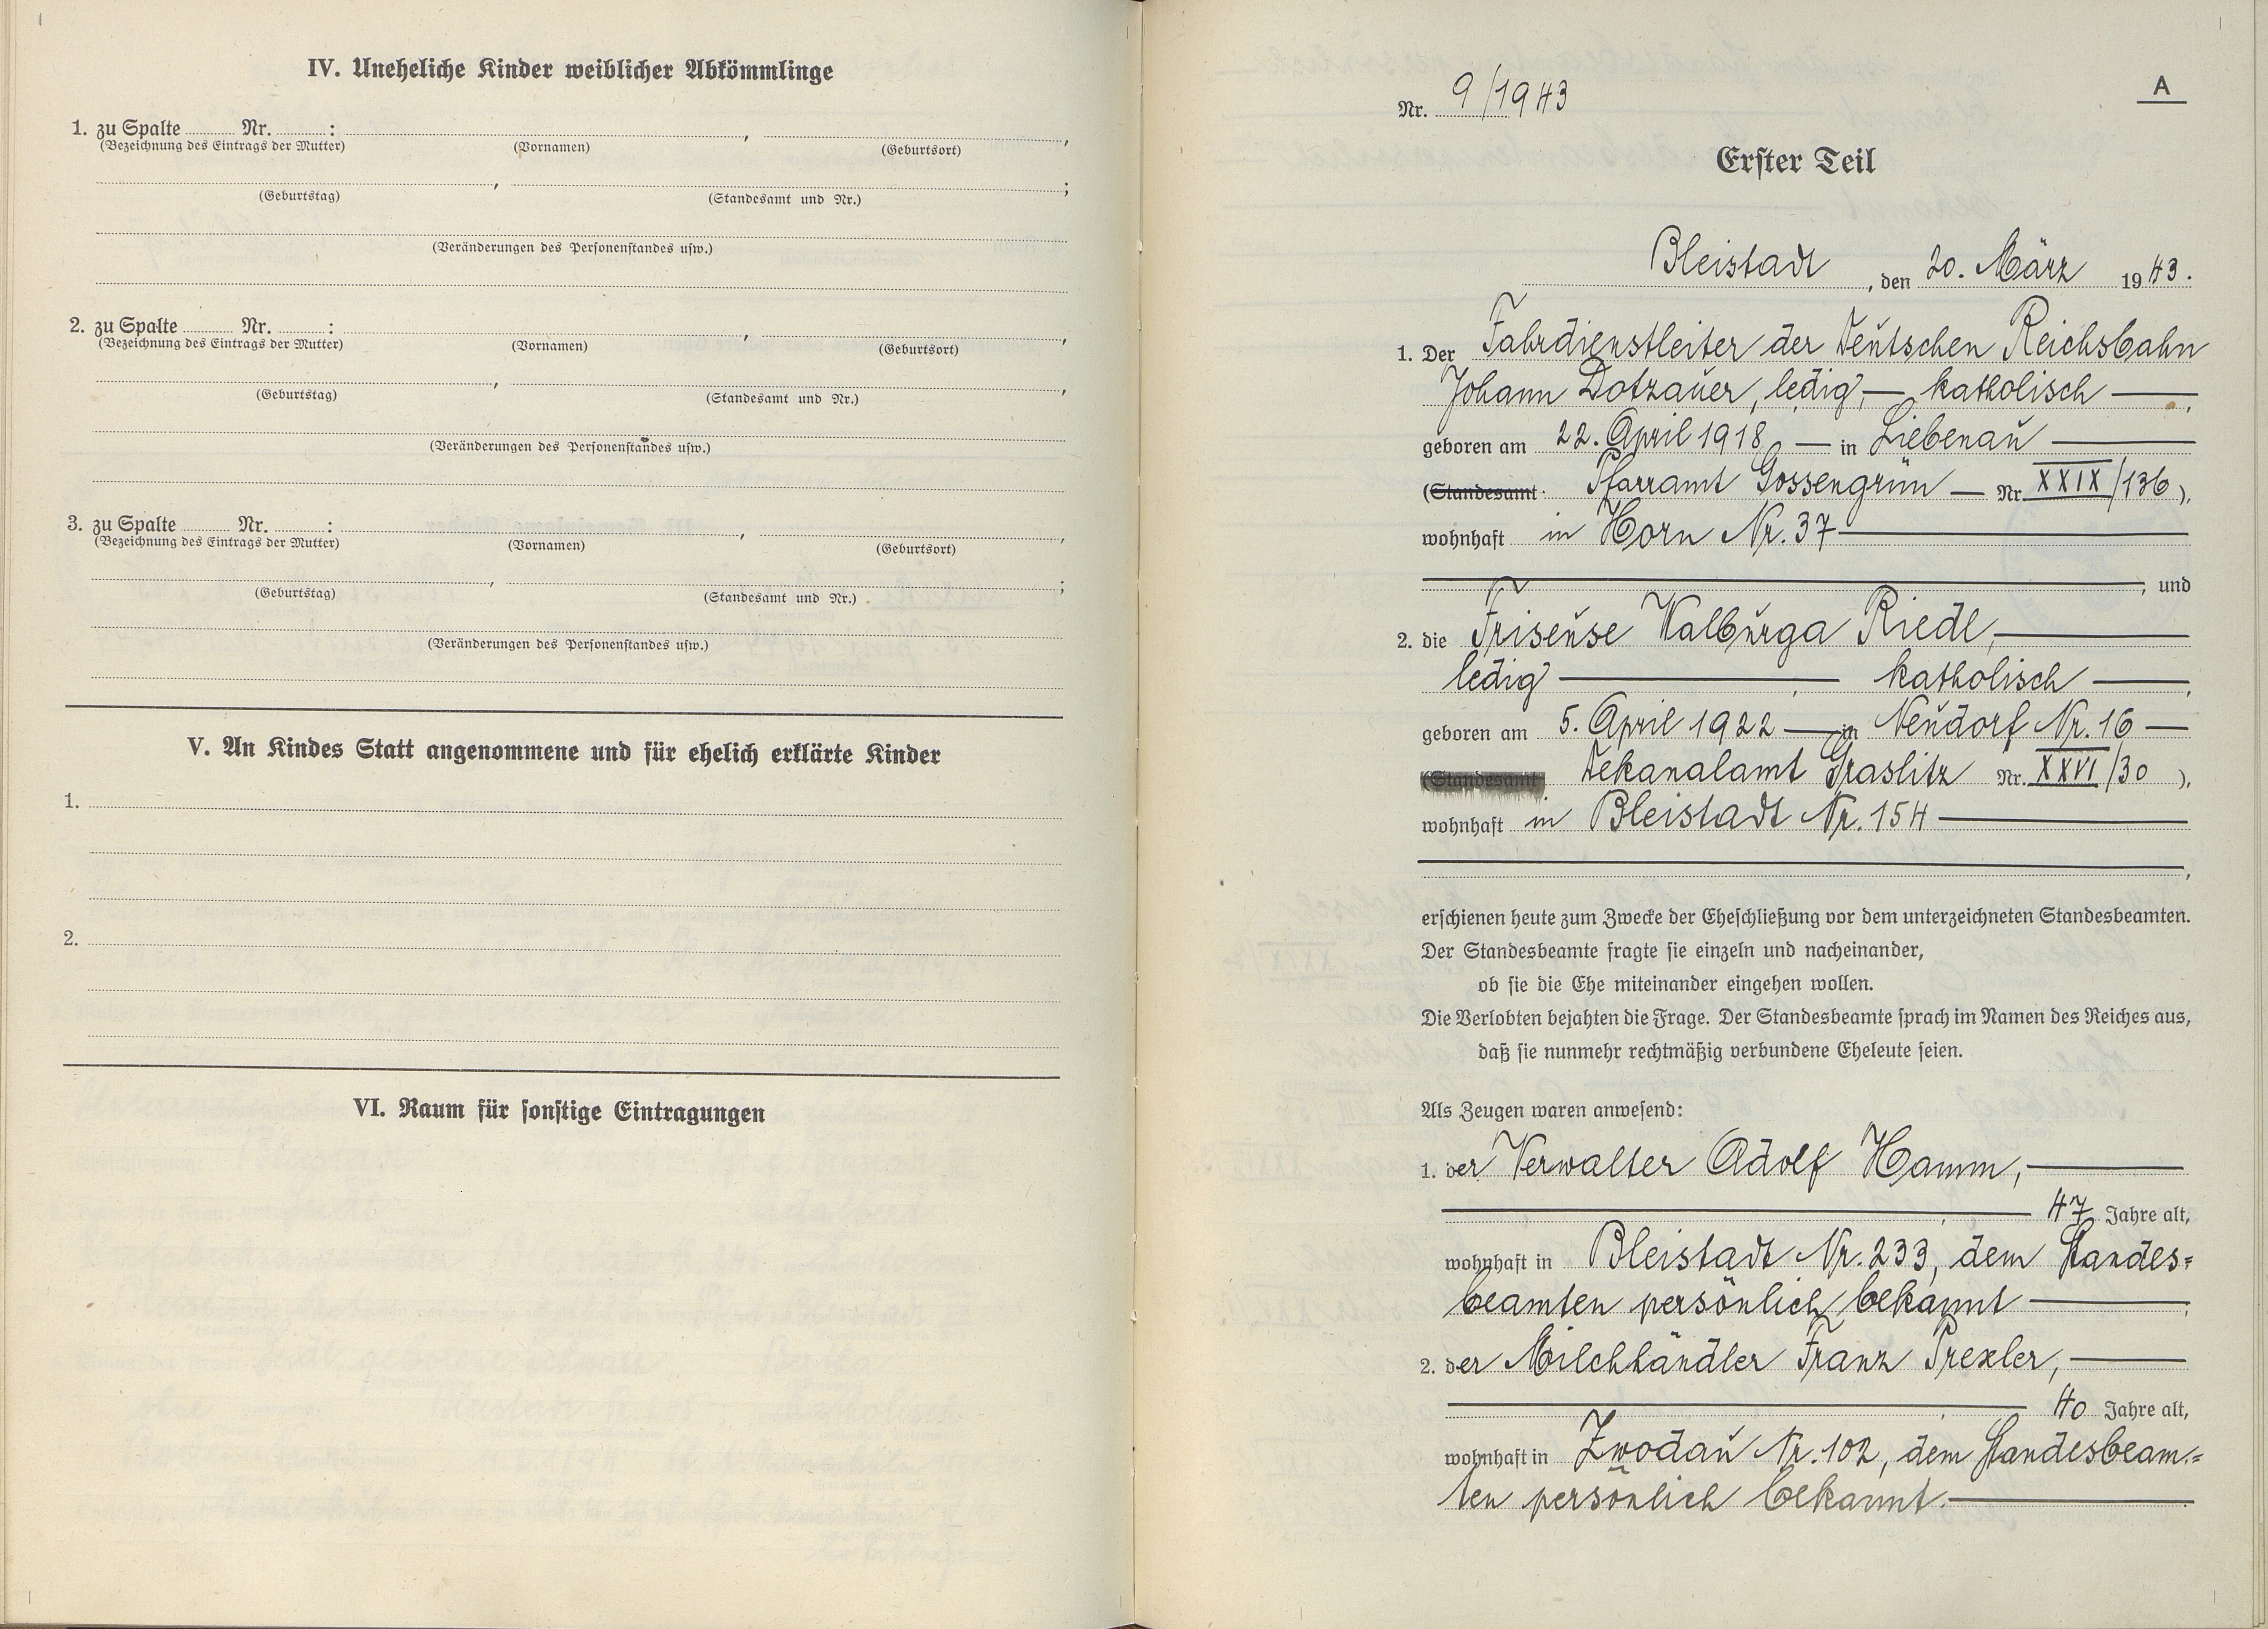 IV. Uneheliche Kinder weiblicher Abkömmlinge
1. zu Spalte Nr. : , ,
(Bezeichnung des Eintrags der Mutter) (Vornamen) (Geburtsort)
, ;
(Geburtstag) (Standesamt und Nr.)
(Veränderungen des Personenstandes usw.)
2. zu Spalte Nr. : , ,
(Bezeichnung des Eintrags der Mutter) (Vornamen) (Geburtsort)
, ,
(Geburtstag) (Standesamt und Nr.)
(Veränderungen des Personenstandes usw.)
3. zu Spalte Nr. : , ,
(Bezeichnung des Eintrags der Mutter) (Vornamen) (Geburtsort)
, ;
(Geburtstag) (Standesamt und Nr.)
(Veränderungen des Personenstandes usw.)
V. An Kindes Statt angenommene und für ehelich erklärte Kinder
1.
2.
VI. Raum für sonstige Eintragungen
A
Nr. 9/1943
Erster Teil
Bleistadt, den 20. März 1943.
1. Der Fahrdienstleiter der Deutschen Reichsbahn
Johann Dotzauer, ledig, — katholisch —,
geboren am 22. April 1918, — in Liebenau —
(Standesamt Pfarramt Gossengrün — Nr. XXIX/136),
wohnhaft in Horn Nr. 37 —
, und
2. die Friseuse Walburga Riedl, —
ledig —, katholisch —,
geboren am 5. April 1922 — in Neudorf Nr. 16 —
(Standesamt Dekanalamt Graslitz Nr. XXVI/30),
wohnhaft in Bleistadt Nr. 154 —
,
erschienen heute zum Zwecke der Eheschließung vor dem unterzeichneten Standesbeamten.
Der Standesbeamte fragte sie einzeln und nacheinander,
ob sie die Ehe miteinander eingehen wollen.
Die Verlobten bejahten die Frage. Der Standesbeamte sprach im Namen des Reiches aus,
daß sie nunmehr rechtmäßig verbundene Eheleute seien.
Als Zeugen waren anwesend:
1. der Verwalter Adolf Hamm, —
— 47 Jahre alt,
wohnhaft in Bleistadt Nr. 233, dem Standes=
beamten persönlich bekannt —;
2. der Milchhändler Franz Prexler, —
— 40 Jahre alt,
wohnhaft in Zwodau Nr. 102, dem Standesbeam=
ten persönlich bekannt. —